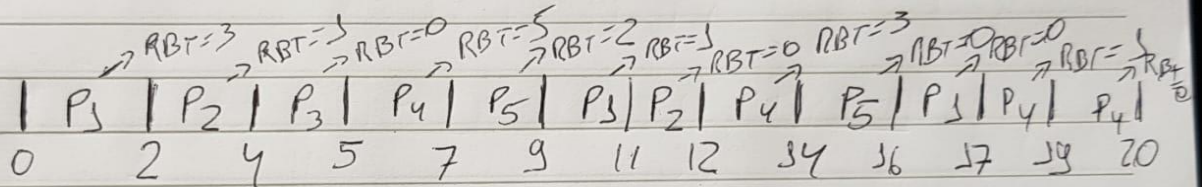 RBT=3 RBT=1 RBT=0 RBT=5 RBT=2 RBT=1 RBT=0 RBT=3 RBT=0 RBT=0 RBT=1 RBT=0
| P1 | P2 | P3 | P4 | P5 | P1 | P2 | P4 | P5 | P1 | P4 | P4 |
0 2 4 5 7 9 11 12 14 16 17 19 20